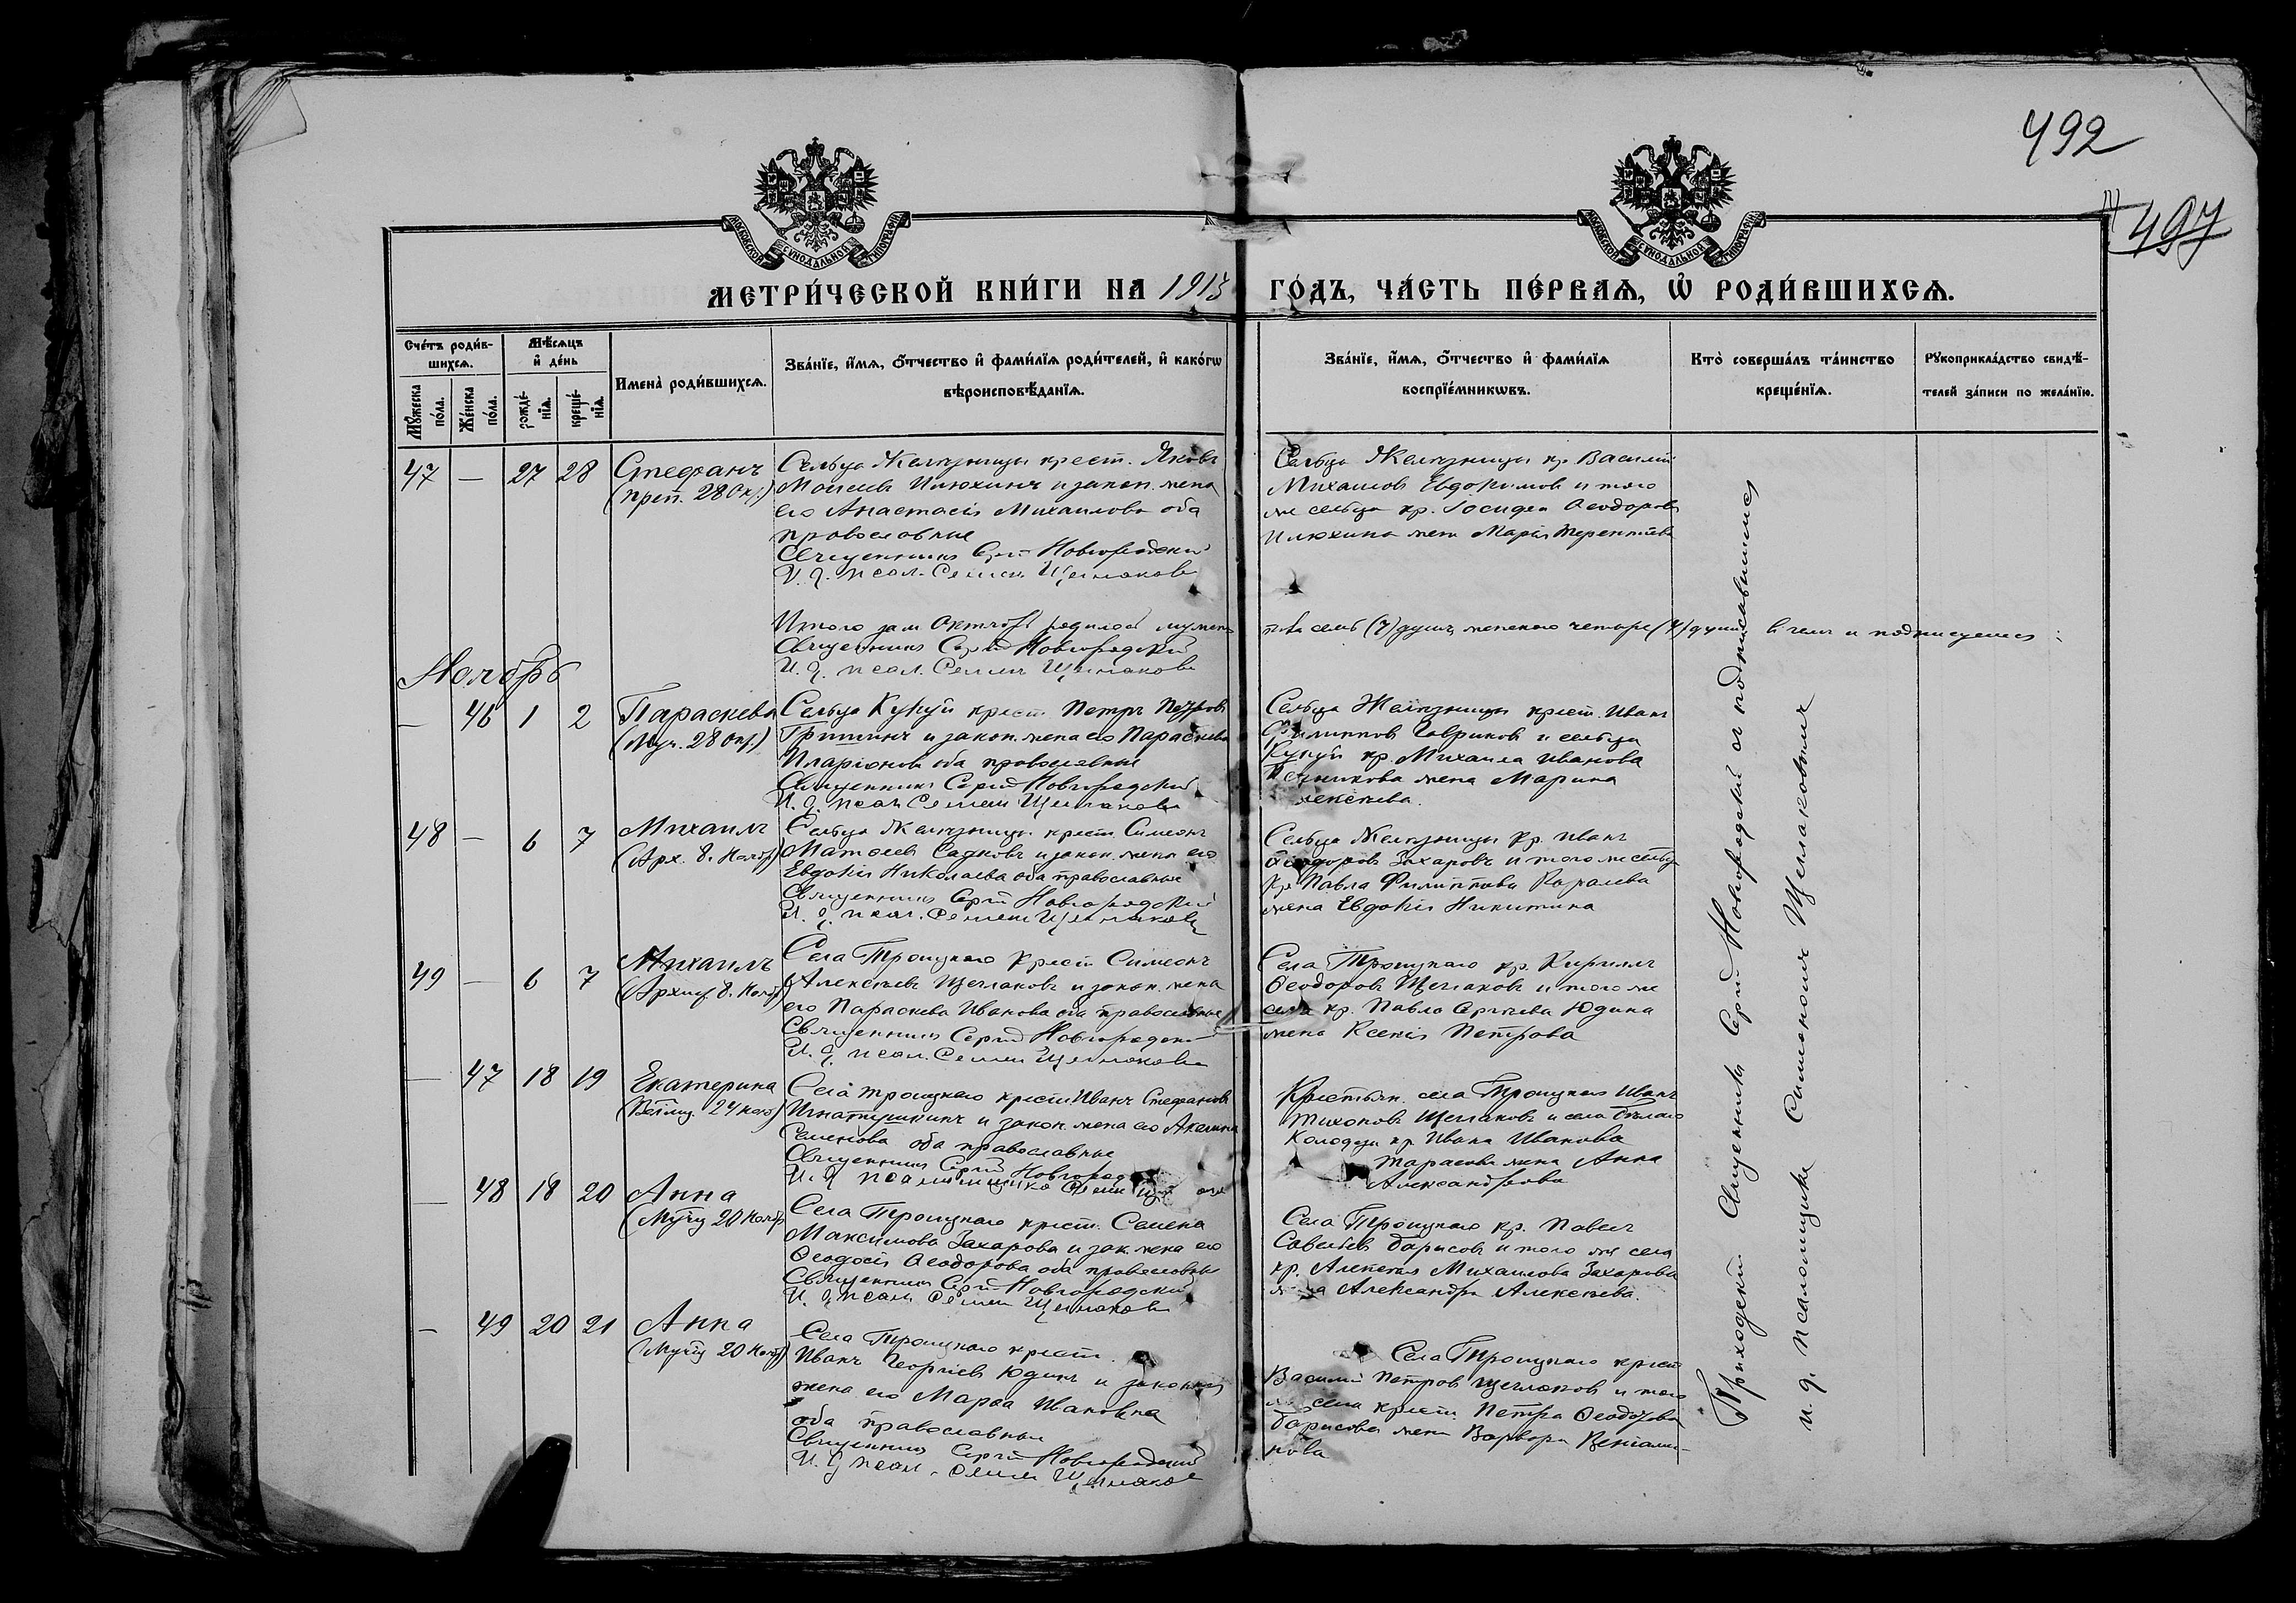 492
497
МОСКОВСКОЙ СѴНОДАЛЬНОЙ ТИПОГРАФІИ
МОСКОВСКОЙ СѴНОДАЛЬНОЙ ТИПОГРАФІИ
МЕТРИ́ЧЕСКОЙ КНИ́ГИ НА 1915 ГО́ДЪ, ЧА́СТЬ ПЕ́РВАѦ, Ѽ РОДИ́ВШИХСѦ.
Сче́тъ роди́в-
шихсѧ.
Мꙋ́жеска
по́ла.
Же́нска
по́ла.
Мѣ́сѧцъ
и҆ де́нь
рожде́-
нїѧ.
креще́-
нїѧ.
Имена̀ роди́вшихсѧ.
Зва́нїе, и҆́мѧ, ѻ҆́тчество и҆ фами́лїѧ роди́телей, и҆ како́гѡ
вѣроисповѣ́данїѧ.
Зва́нїе, и҆́мѧ, ѻ҆́тчество и҆ фами́лїѧ
воспрїе́мникѡвъ.
Кто̀ соверша́лъ та́инство
креще́нїѧ.
Рꙋкоприкла́дство свидѣ́-
телей за́писи по жела́нїю.
47 — 27 28 Стефанъ
(преп. 28 Окт.)
Сельца Желѣзницы крест. Яковъ
Моисеевъ Илюхинъ и закон. жена
его Анастасія Михаилова оба
православные
Священникъ Сергій Новгородскій
И. д. псал. Семенъ Щеглаковъ
Сельца Желѣзницы кр. Василій
Михаиловъ Евдокимовъ и того
же сельца кр. Іосифа Ѳеодорова
Илюхина жена Марія Терентіева
Итого за м. Октябрь родилось мужескаго пола семь (7) душъ женскаго четыре (4) души въ чемъ и подписуемся:
Священникъ Сергій Новгородскій
И. д. псал. Семенъ Щеглаковъ
Ноябрь
— 46 1 2 Параскева
(Муч. 28 Окт.)
Сельца Кукуй крест. Петръ Петровъ
Гришинъ и закон. жена его Параскева
Иларіонова оба православные
Священникъ Сергій Новгородскій
И. д. псал. Семенъ Щеглаковъ
Сельца Желѣзницы крест. Иванъ
Филипповъ Гавриковъ и сельца
Кукуй кр. Михаила Иванова
жена Марина
48 — 6 7 Михаилъ
(Арх. 8. Ноябр.)
Сельца Желѣзницы крест. Симеонъ
Матѳеевъ Садковъ и закон. жена его
Евдокія Николаева оба православные
Священникъ Сергій Новгородскій
И. д. псал. Семенъ Щеглаковъ
Сельца Желѣзницы кр. Иванъ
Ѳеодоровъ Захаровъ и того же сельца
кр. Павла Филиппова Каралева
жена Евдокія Никитина
49 — 6 7 Михаилъ
(Архис. 8. Ноябр.)
Села Троицкаго крест. Симеонъ
Алексѣевъ Щеглаковъ и закон. жена
его Параскева Иванова оба православные
Священникъ Сергій Новгородскій
И. д. псал. Семенъ Щеглаковъ
Села Троицкаго кр. Кириллъ
Ѳеодоровъ Щеглаковъ и того же
села кр. Павла Сергѣева Юдина
жена Ксенія Петрова
— 47 18 19 Екатерина
(Велмц. 24 нояб.)
Села Троицкаго крест. Иванъ Стефановъ
Игнатушкинъ и закон. жена его Акилина
Семенова оба православные
Священникъ Сергій Новгородскій
И. д. псаломщика Семенъ
Крестьян. села Троицкаго Иванъ
Тихоновъ Щеглаковъ и села Бѣлаго
Колодезя кр. Ивана Иванова
Тарасова жена Анна
Александрова
— 48 18 20 Анна
(Мучц 20 Ноябр.)
Села Троицкаго крест. Семена
Максимова Захарова и зак. жена его
Ѳеодосія Ѳеодорова оба православные
Священникъ Сергій Новгородскій
И. д. псал. Семенъ Щеглаковъ
Села Троицкаго кр. Павелъ
Савельевъ Барисовъ и того же села
кр. Алексѣя Михаилова Захарова
жена Александра Алексѣева.
— 49 20 21 Анна
(Мучц 20 Нояб.)
Села Троицкаго крест.
Иванъ Георгіевъ Юдинъ и законная
жена его Марѳа Ивановна
оба православные
Священникъ Сергій Новгородскій
И. д. псал. Семенъ Щеглаковъ
Села Троицкаго крест.
Василій Петровъ Щеглаковъ и того
же села крест. Петра Ѳеодорова
Барисова жена Варвара Веніами-
нова
Приходскій Священникъ Сергій Новгородскій съ подписавшимся
и. д. псаломщика Симеономъ Щеглаковымъ